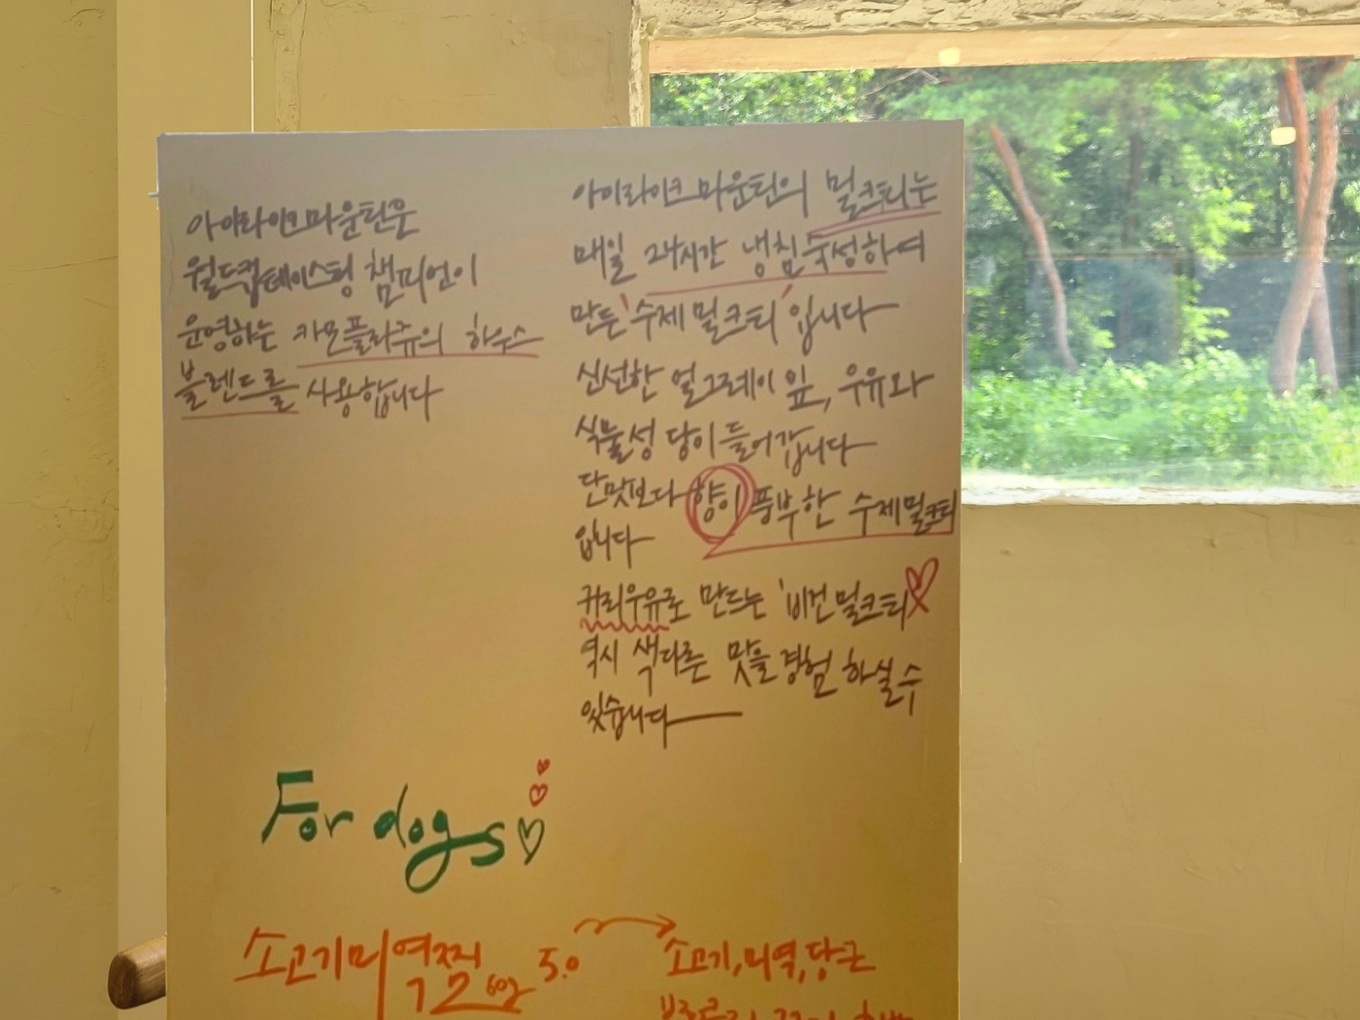 아이라이크마운틴은
월드컵테이스팅 챔피언이
운영하는 카모플라쥬의 하우스
블렌드를 사용합니다
아이라이크마운틴의 밀크티는
매일 24시간 냉침숙성하여
만든 '수제 밀크티' 입니다
신선한 얼그레이 잎, 우유와
식물성 당이 들어갑니다
단맛보다 향이 풍부한 수제밀크티
입니다
귀리우유로 만드는 '비건 밀크티'
역시 색다른 맛을 경험 하실 수
있습니다
For dogs
소고기미역찜 60g 5.0
소고기, 미역, 당근